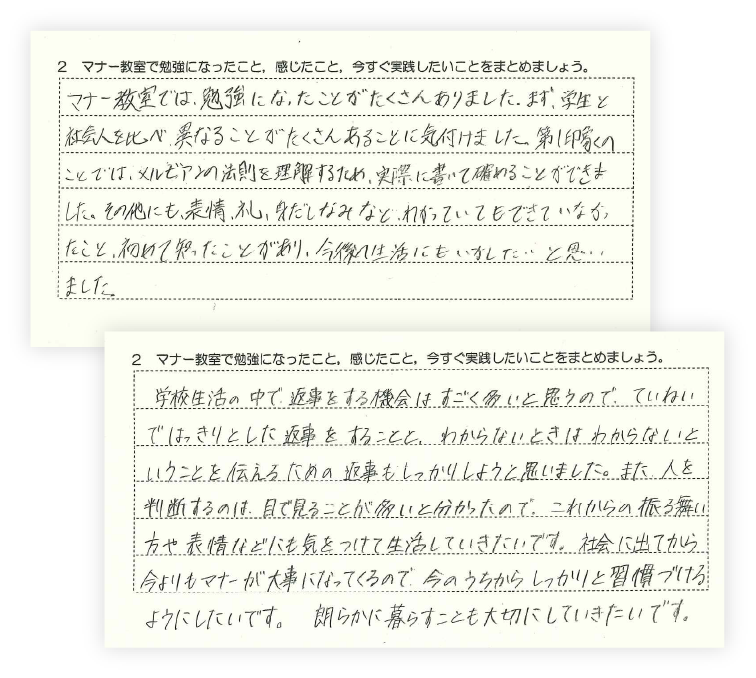 2　マナー教室で勉強になったこと，感じたこと，今すぐ実践したいことをまとめましょう。
マナー教室では、勉強になったことがたくさんありました。まず、学生と
社会人を比べ、異なることがたくさんあることに気付けました。第1印象の
ことでは、メルビアンの法則を理解するため、実際に書いて確めることができま
した。その他にも、表情、礼、身だしなみなど、わかっていてもできていなかっ
たこと、初めて知ったことがあり、今後の生活にもいかしたいと思い
ました。
2　マナー教室で勉強になったこと，感じたこと，今すぐ実践したいことをまとめましょう。
学校生活の中で返事をする機会はすごく多いと思うので、ていねい
ではっきりとした返事をすることと、わからないときはわからないと
いうことを伝えるための返事もしっかりしようと思いました。また、人を
判断するのは、目で見ることが多いと分かったので、これからの振る舞い
方や表情などにも気をつけて生活していきたいです。社会に出てから
今よりもマナーが大事になってくるので、今のうちからしっかりと習慣づける
ようにしたいです。　朗らかに暮らすことも大切にしていきたいです。